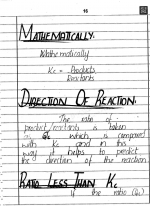 16
MATHEMATICALLY.
Mathematically
Kc = Products
Reactants
DIRECTION OF REACTION.
The ratio of
product/reactants is taken
as Qc which is compared
with Kc and in this
way it helps to predict
the direction of the reaction
RATIO LESS THAN Kc
If the ratio (Qc)